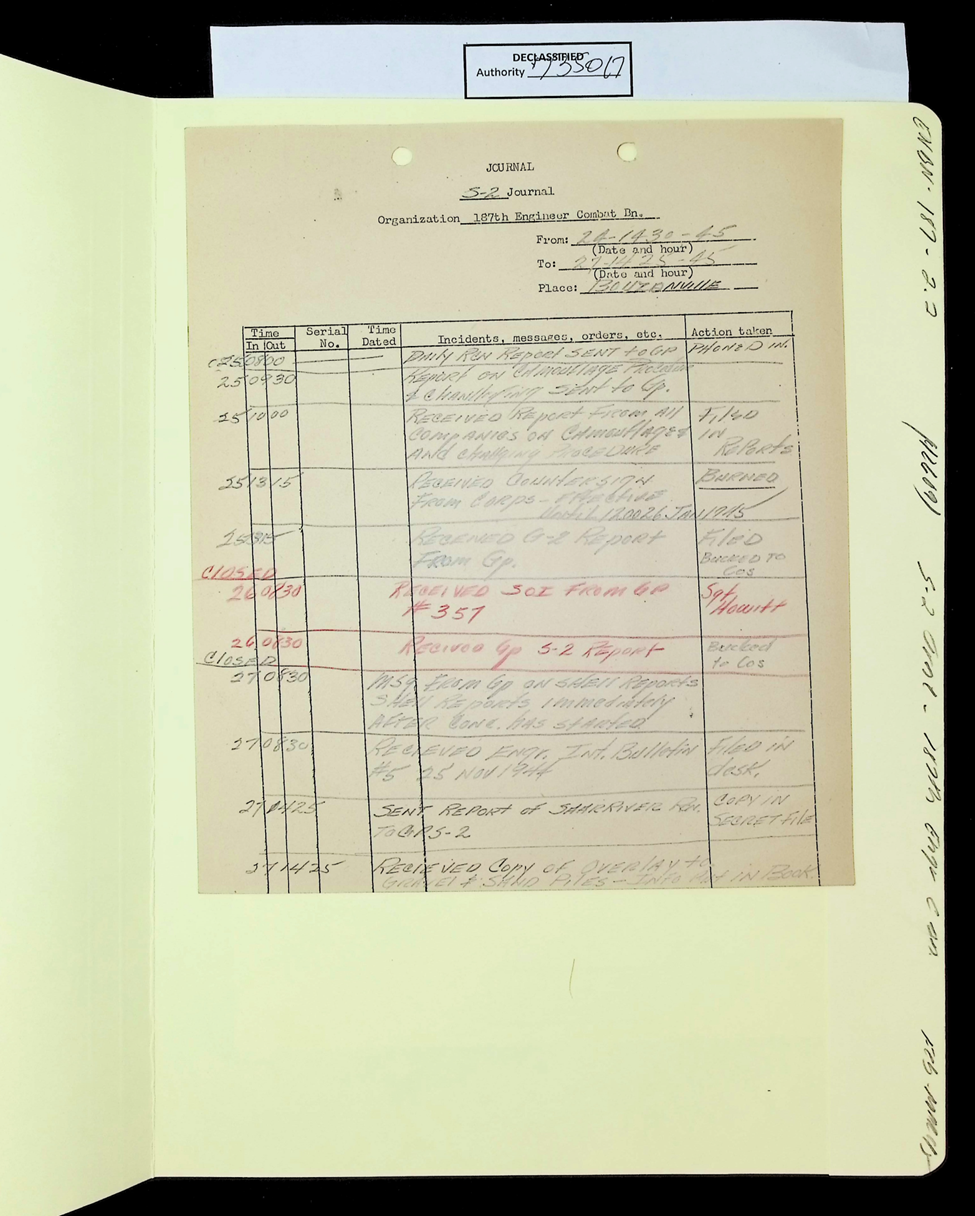 DECLASSIFIED
Authority 735017
JOURNAL
S-2 Journal
Organization 187th Engineer Combat Bn.
From: 24-1430-45
(Date and hour)
To: 27-1425-45
(Date and hour)
Place: BOUZANVILLE
Time Serial Time
In Out No. Dated Incidents, messages, orders, etc. Action taken
250800 DAILY RCN REPORT SENT to GP. PHONED IN.
250930 REPORT ON CAMOUFLAGE PROGRAM
& CHANGING SENT to Gp.
251000 RECEIVED REPORT FROM All FilED
COMPANIES ON CAMOUFLAGE & IN
AND CHANGING PROCEDURE REPORTS
251315 RECEIVED COUNTERSIGN BURNED
FROM CORPS - EFFECTIVE
Until 120026 JAN 1945
RECEIVED G-2 REPORT FilED
FROM Gp. BUCKED TO
Cos
CLOSED
260830 RECEIVED SOI FROM GP Sgt
# 357
260830 RECIVED Gp S-2 REPORT Bucked
to Cos
CLOSED
270830 MSG FROM Gp ON SHELL REPORTS
SHELL REPORTS immediately
AFTER CONC. HAS STARTED
270830 RECIEVED ENGR. INT. Bulletin FilED IN
#5 25 NOV 1944 desk.
271425 SENT REPORT OF SAAR RIVER RCN. COPY IN
TO GP S-2 SECRET FilE
271425 RECIEVED COPY OF OVERLAY to
GRAVEl & SAND PILES - INFO IN BOOK
ENBN-187-2.2
S-2 Jrnl - 187th Engr C Bn